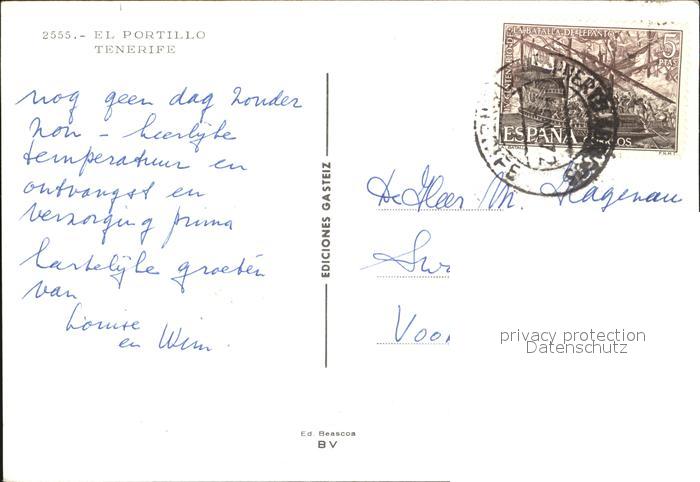 2555.- EL PORTILLO
TENERIFE
nog geen dag zonder
zon - heerlijke
temperatuur en
ontvangst en
verzorging prima
hartelijke groeten
van
Louise
en Wim.
EDICIONES GASTEIZ
Ed. Beascoa
BV
LA BATALLA DE LEPANTO
5
PTAS
ESPAÑA
CORREOS
F.N.M.T.
TENERIFE
De Heer Th. Hagenau
Voor
privacy protection
Datenschutz